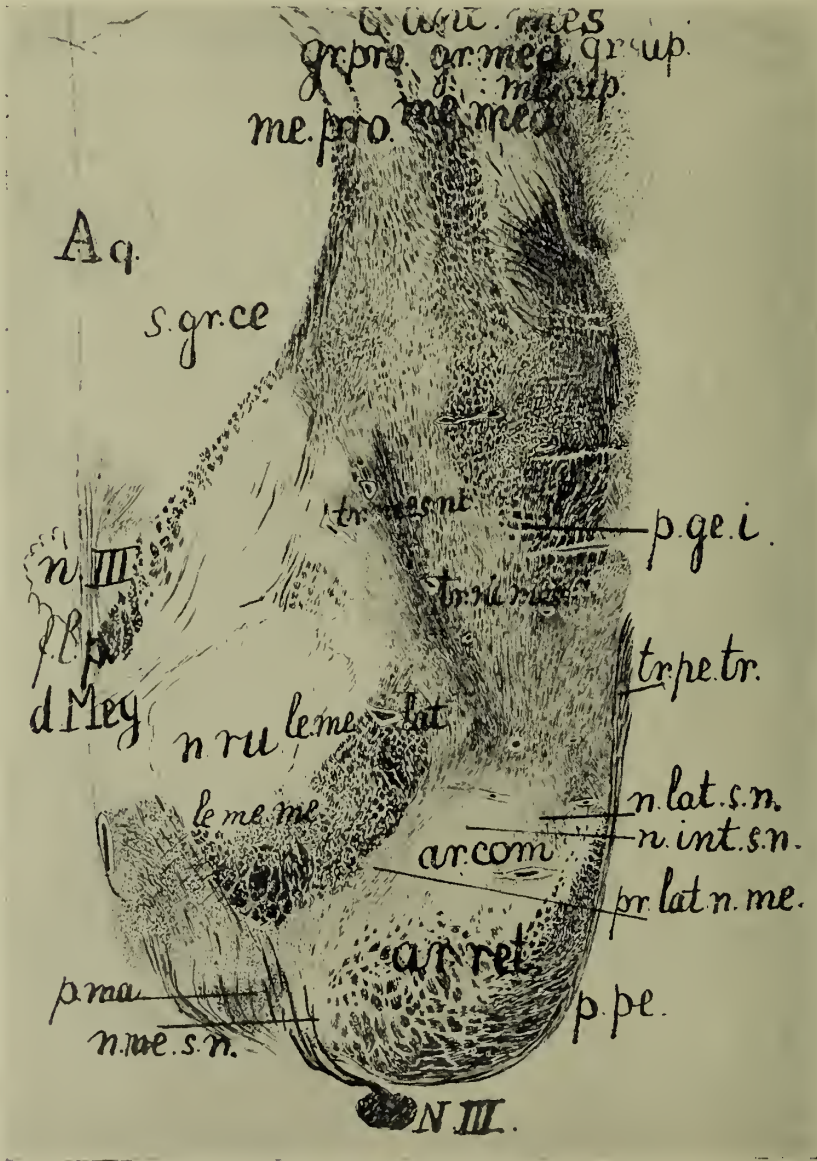 gr.pro. gr.med. gr.sup.
me.sup.
me.pro. me.med.
Aq.
s.gr.ce
tr. mes nt
p.ge.i.
n.III
tr.ru mes
f.l.p.
tr.pe.tr.
d Mey
n ru le.me lat
le me me
n.lat.s.n.
n.int.s.n.
ar.com
pr.lat.n.me.
ar.ret.
p.ma
p.pe.
n.me.s.n.
N.III.